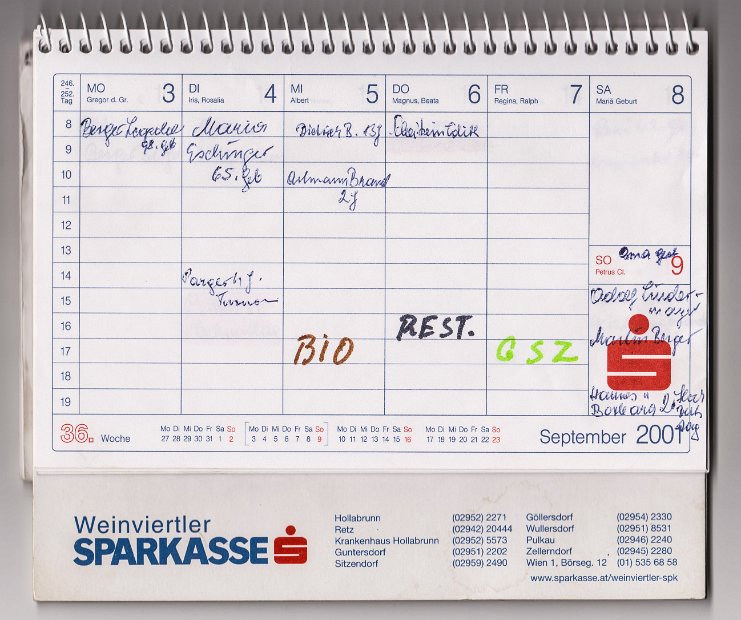 246.
252.
Tag
MO 3
Gregor d. Gr.
DI 4
Iris, Rosalia
MI 5
Albert
DO 6
Magnus, Beata
FR 7
Regina, Ralph
SA 8
Mariä Geburt
8
9
10
11
12
13
14
15
16
17
18
19
Berger Leopoldine
68. Geb
Maria
Eschinger
65. Geb
Dietrich B. 13J
2 J
BIO
REST.
GSZ
SO 9
Petrus Cl.
Oma gest
Adolf Linder-
mayer
Martin Berger
Hannes u
Barbara 2.
36. Woche
Mo Di Mi Do Fr Sa So
27 28 29 30 31 1 2
Mo Di Mi Do Fr Sa So
3 4 5 6 7 8 9
Mo Di Mi Do Fr Sa So
10 11 12 13 14 15 16
Mo Di Mi Do Fr Sa So
17 18 19 20 21 22 23
September 2001
Weinviertler
SPARKASSE
Hollabrunn (02952) 2271
Retz (02942) 20444
Krankenhaus Hollabrunn (02952) 5573
Guntersdorf (02951) 2202
Sitzendorf (02959) 2490
Göllersdorf (02954) 2330
Wullersdorf (02951) 8531
Pulkau (02946) 2240
Zellerndorf (02945) 2280
Wien 1, Börseg. 12 (01) 535 68 58
www.sparkasse.at/weinviertler-spk